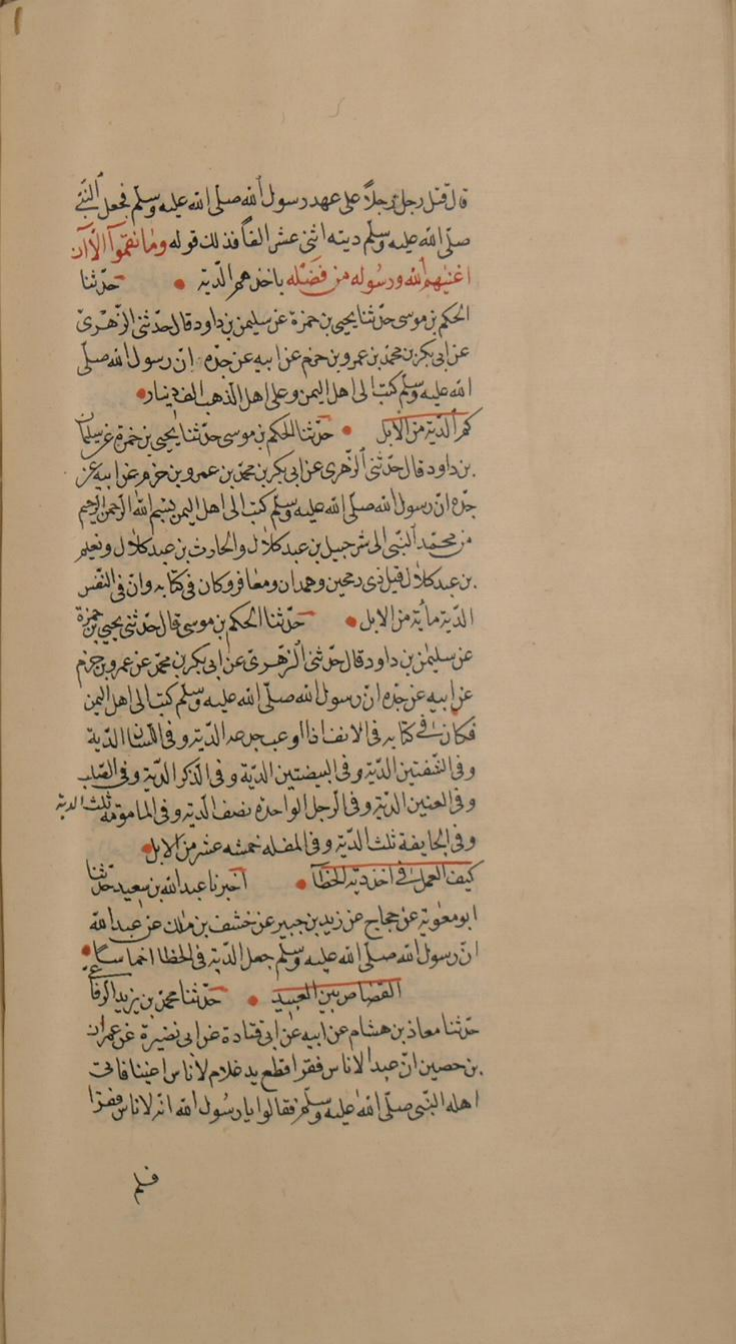 قال قتل رجل رجلاً على عهد رسول الله صلى الله عليه وسلم فجعل النبي
صلى الله عليه وسلم ديته اثنى عشر الفاً فذلك قوله وما نقموا الا ان
اغنيهم الله ورسوله من فضله باخذهم الدية حدثنا
الحكم بن موسى حدثنا يحيى بن حمزة عن سليمن بن داود قال حدثنى الزهرى
عن ابى بكر بن محمد بن عمرو بن حزم عن ابيه عن جده ان رسول الله صلى
الله عليه وسلم كتب الى اهل اليمن وعلى اهل الذهب الف دينار
كم الدية من الابل حدثنا الحكم بن موسى حدثنا يحيى بن حمزة عن سليمان
بن داود قال حدثنى الزهرى عن ابى بكر بن محمد بن عمرو بن حزم عن ابيه عن
جده ان رسول الله صلى الله عليه وسلم كتب الى اهل اليمن بسم الله الرحمن الرحيم
من محمد النبى الى شرحبيل بن عبد كلال والحارث بن عبد كلال ونعيم
بن عبد كلال قيل ذى رعين وهمدان ومعافر وكان فى كتابه وان فى النفس
الدية مائة من الابل حدثنا الحكم بن موسى قال حدثنى يحيى بن حمزة
عن سليمن بن داود قال حدثنى الزهرى عن ابى بكر بن محمد عن عمرو بن حزم
عن ابيه عن جده ان رسول الله صلى الله عليه وسلم كتب الى اهل اليمن
فكان فى كتابه فى الانف اذا اوعب جدعه الدية وفى اللسان الدية
وفى الشفتين الدية وفى البيضتين الدية وفى الذكر الدية وفى الصلب
وفى العنين الدية وفى الرجل الواحدة نصف الدية وفى المامومة ثلث الدية
وفى الجايفة ثلث الدية وفى المنقله خمسه عشر من الابل
كيف العمل فى اخذ دية الخطأ اخبرنا عبد الله بن سعيد حدثنا
ابو معوية عن حجاج عن زيد بن جبير عن خشف بن ملك عن عبد الله
ان رسول الله صلى الله عليه وسلم جعل الدية فى الخطا اخماسا
القصاص بين العبيد حدثنا محمد بن يزيد الرفاعى
حدثنا معاذ بن هشام عن ابيه عن ابى قتادة عن ابى نضيرة عن عمران
بن حصين ان عبدا لاناس فقرا قطع يد غلام لاناس اغنيا فاتى
اهله النبى صلى الله عليه وسلم فقالوا يا رسول الله انه لاناس فقرا
فلم